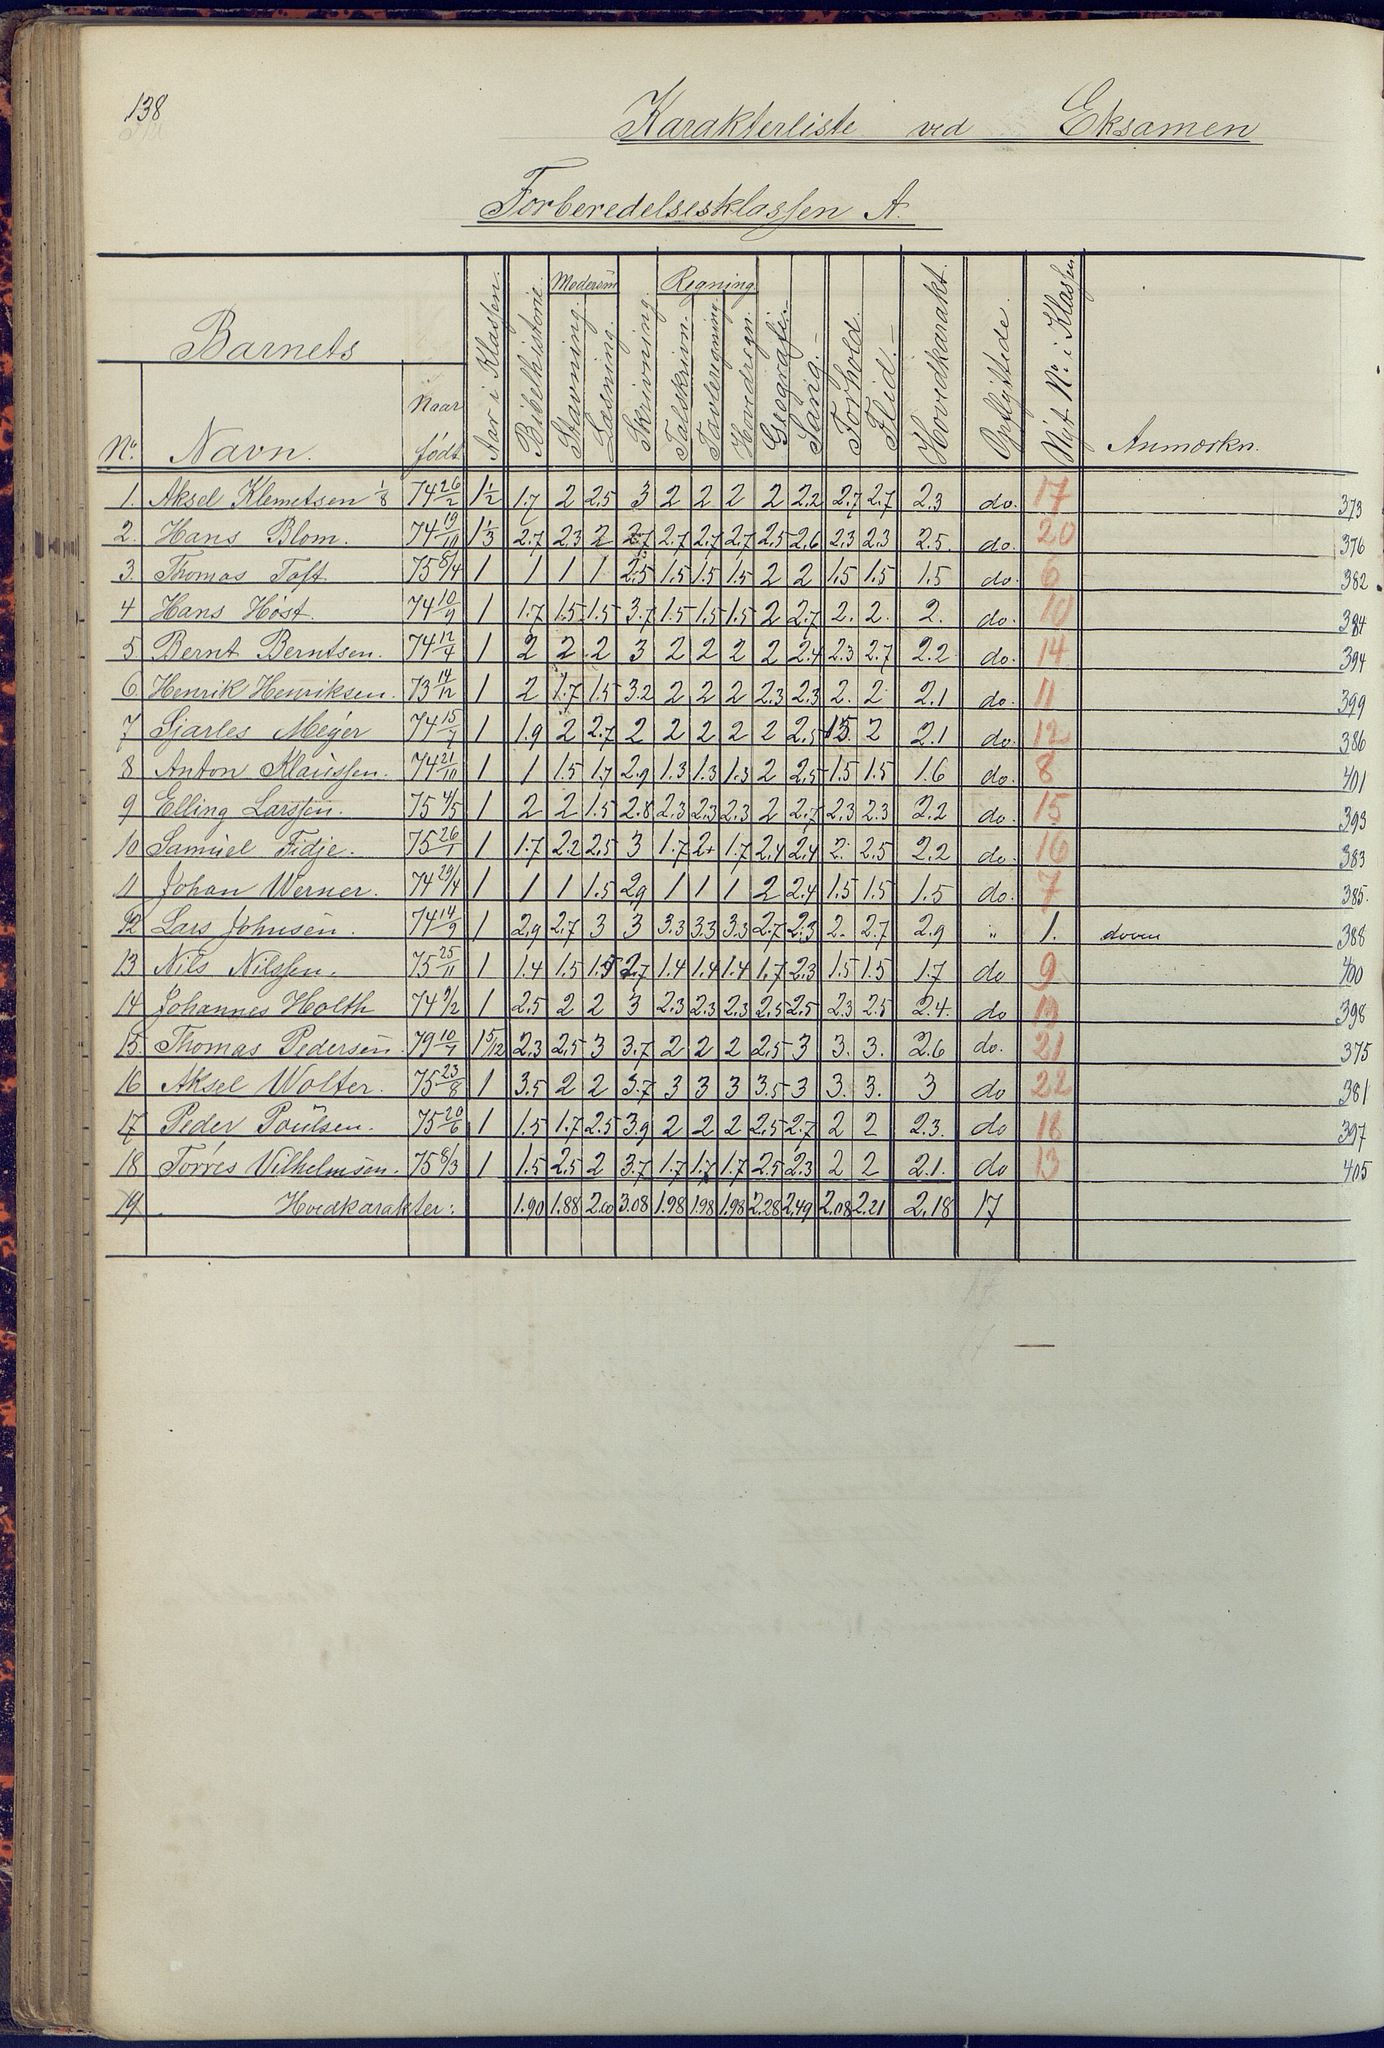 138
Karakterliste ved Eksamen
Forberedelsesklassen A.
Barnets
No. Navn. Naar født Aar i Klassen. Bibelhistorie. Modersm Stavning. Læsning. Skrivning. Regning Talskrivn. Tavleregning Hovedregn. Geografi. Sang. Forhold. Flid. Hovedkarakt. Opflyttede. Nyt No. i Klassen Anmærkn.
1. Aksel Klemetsen 1/8 74 26/2 1 1/2 1.7 2 2.5 3 2 2 2 2 2.2 2.7 2.7 2.3 do. 17 373
2. Hans Blom. 74 19/10 1 1/3 2.7 2.3 2 2.7 2.7 2.7 2.7 2.5 2.6 2.3 2.3 2.5. do. 20 376
3. Thomas Toft 75 8/4 1 1 1 1 2.5 1.5 1.5 1.5 2 2 1.5 1.5 1.5 do. 6 382
4 Hans Høst. 74 10/9 1 1.7 1.5 1.5 3.7 1.5 1.5 1.5 2 2.7 2. 2. 2. do. 10 384
5 Bernt Berntsen. 74 12/4 1 2 2 2 3 2 2 2 2 2.4 2.3 2.7 2.2 do. 14 394
6. Henrik Henriksen. 73 14/12 1 2 1.7 1.5 3.2 2 2 2 2.3 2.3 2. 2 2.1 do. 11 399
7 Sjarles Meyer 74 15/7 1 1.9 2 2.7 2 2 2 2 2 2.5 1.5. 2 2.1 do. 12 386
8 Anton Klaussen. 74 21/10 1 1 1.5 1.7 2.9 1.3 1.3 1.3 2 2.5 1.5 1.5 1.6 do. 8 401
9 Elling Larssen. 75 4/5 1 2 2 1.5 2.8 2.3 2.3 2.3 2 2.7 2.3 2.3 2.2 do. 15 393
10 Samuel Fidje. 75 26/1 1 1.7 2.2 2.5 3 1.7 2+ 1.7 2.4 2.4 2. 2.5 2.2 do. 16 383
11 Johan Werner. 74 29/4 1 1 1 1.5 2.9 1 1 1 2 2.4 1.5 1.5 1.5 do. 7 385.
12 Lars Johnsen. 74 14/9 1 2.9 2.7 3 3 3.3 3.3 3.3 2.7 2.3 2. 2.7 2.9 " 1. doven 388
13 Nils Nilssen. 75 25/11 1 1.4 1.5 1.5 2.7 1.4 1.4 1.4 1.7 2.3 1.5 1.5 1.7 do 9 400
14 Johannes Holth 74 9/2 1 2.5 2 2 3 2.3 2.3 2.3 2.5 2.5 2.3 2.5 2.4. do 398
15. Thomas Pedersen. 79 10/7 1 5/12 2.3 2.5 3 3.7 2 2 2 2.5 3 3. 3. 2.6 do. 21 375
16 Aksel Wolter. 75 23/8 1 3.5 2 2 3.7 3 3 3 3.5 3 3. 3. 3 do 22 381
17 Peder Poulsen. 75 20/6 1 1.5 1.7 2.5 3.9 2 2 2 2.5 2.7 2 2 2.3. do 18 397
18 Torres Vilhelmsen. 75 8/3 1 1.5 2.5 2 3.7 1.7 1.7 1.7 2.5 2.3 2 2 2.1. do 13 405
19 Hovedkarakter: 1.90 1.88 2.00 3.08 1.98 1.98 1.98 2.28 2.49 2.08 2.21 2.18 17